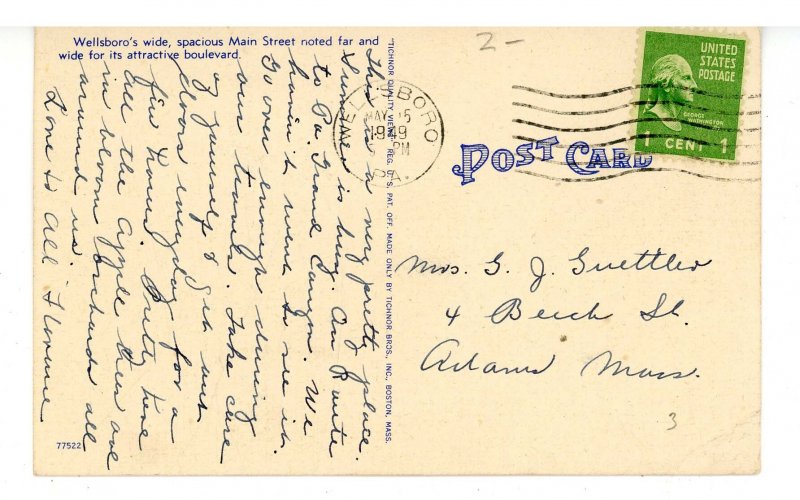 Wellsboro's wide, spacious Main Street noted far and
wide for its attractive boulevard.
This is a very pretty place.
Summer is busy. On Route
to Pa. Grand Canyon. We
havin't were to see it.
Go over enough during
our travels. Take care
of yourself & get out
doors everyday for a
few hours. Pretty here
all the apple trees are
in bloom orchards all
around us.
Love to all Florence
77522
"TICHNOR QUALITY VIEWS," REG. U. S. PAT. OFF. MADE ONLY BY TICHNOR BROS., INC., BOSTON, MASS.
2-
WELLSBORO
MAY 5
1949
PM
PA.
UNITED
STATES
POSTAGE
GEORGE
WASHINGTON
1 CENT 1
POST CARD
Mrs. G. J. Guettler
4 Beech St.
Adams Mass.
3